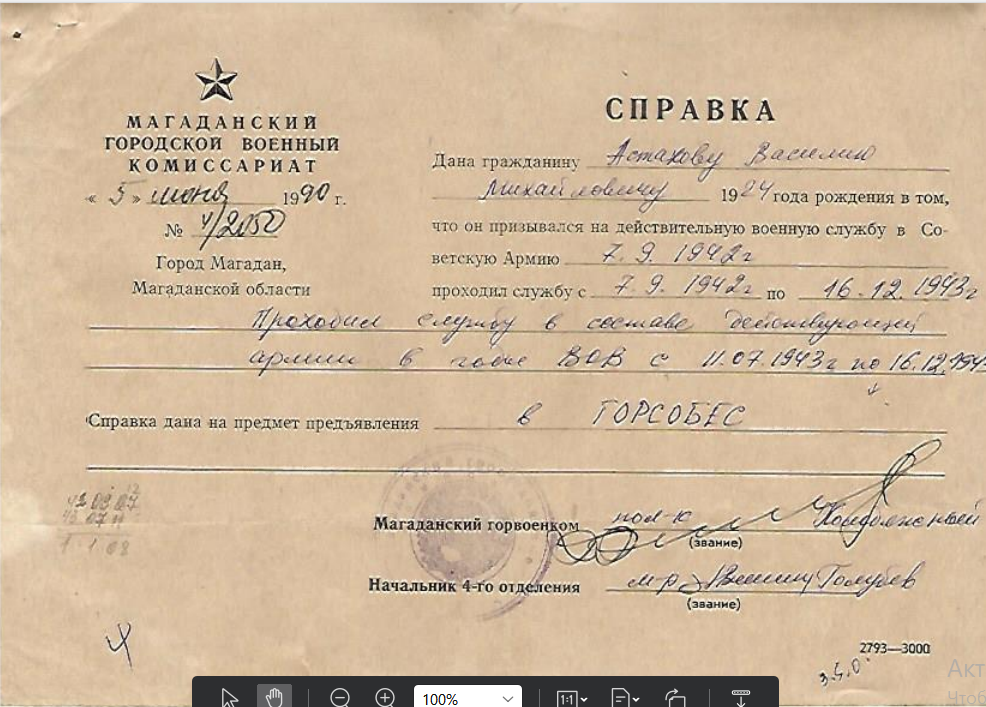 МАГАДАНСКИЙ
ГОРОДСКОЙ ВОЕННЫЙ
КОМИССАРИАТ
« 5 » июня 1990 г.
№ 4/2050
Город Магадан,
Магаданской области
СПРАВКА
Дана гражданину Астахову Василию
Михайловичу 1924 года рождения в том,
что он призывался на действительную военную службу в Со-
ветскую Армию 7.9.1942г
проходил службу с 7.9.1942г по 16.12.1943г
Проходил службу в составе действующей
армии в годы ВОВ с 11.07.1943г по 16.12.194
Справка дана на предмет предъявления в ГОРСОБЕС
Магаданский горвоенком пол-к
(звание)
Начальник 4-го отделения м-р Голубев
(звание)
4
2793—3000
з.5.0.
100%
1:1
Акт
Чтоб